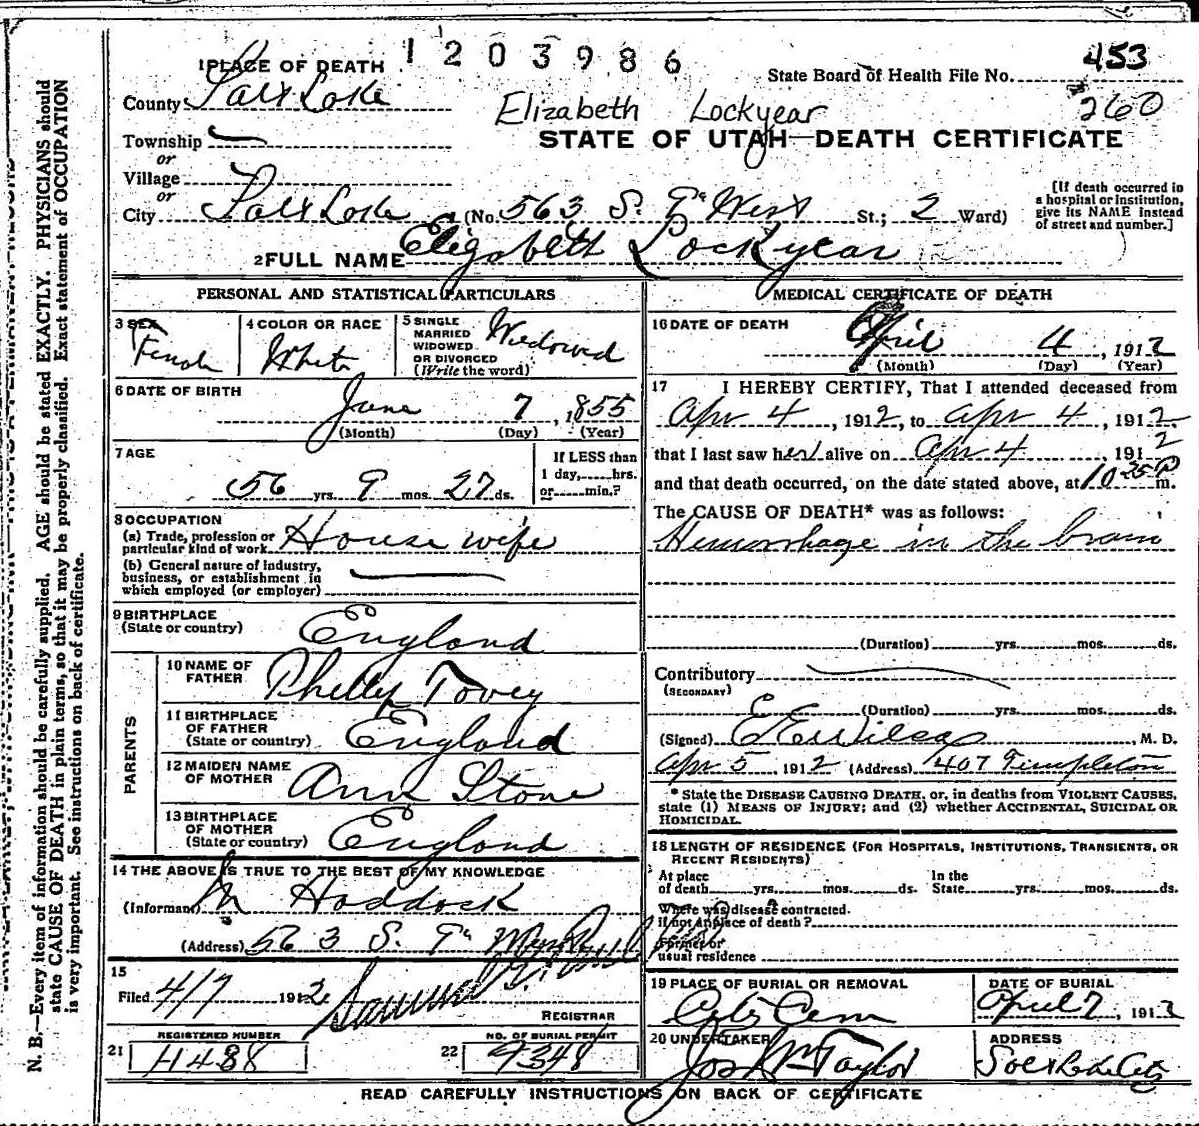 1203986
1 PLACE OF DEATH
State Board of Health File No. 453
County Salt Lake
260
Elizabeth Lockyear
STATE OF UTAH—DEATH CERTIFICATE
Township
or
Village
or
City Salt Lake (No. 563 S. West St.; 2 Ward)
[If death occurred in
a hospital or institution,
give its NAME instead
of street and number.]
2 FULL NAME Elizabeth Lockyear
PERSONAL AND STATISTICAL PARTICULARS
3 SEX
Female
4 COLOR OR RACE
White
5 SINGLE
MARRIED
WIDOWED
OR DIVORCED
(Write the word)
Widowed
6 DATE OF BIRTH
June 7, 1855
(Month) (Day) (Year)
7 AGE
56 yrs. 9 mos. 27 ds.
If LESS than
1 day,......hrs.
or......min.?
8 OCCUPATION
(a) Trade, profession or
particular kind of work House wife
(b) General nature of industry,
business, or establishment in
which employed (or employer)
9 BIRTHPLACE
(State or country) England
PARENTS
10 NAME OF
FATHER Tovey
11 BIRTHPLACE
OF FATHER
(State or country) England
12 MAIDEN NAME
OF MOTHER Ann Stone
13 BIRTHPLACE
OF MOTHER
(State or country) England
14 THE ABOVE IS TRUE TO THE BEST OF MY KNOWLEDGE
(Informant) M Haddock
(Address) 563 S.
15
Filed 4/7 1912 Samuel
REGISTRAR
REGISTERED NUMBER
21 H488
NO. OF BURIAL PERMIT
22 9348
MEDICAL CERTIFICATE OF DEATH
16 DATE OF DEATH
April 4, 1912
(Month) (Day) (Year)
17 I HEREBY CERTIFY, That I attended deceased from
Apr 4, 1912, to Apr 4, 1912,
that I last saw her alive on Apr 4, 1912
and that death occurred, on the date stated above, at 10 35 P m.
The CAUSE OF DEATH* was as follows:
Hemorrhage in the brain
(Duration) yrs. mos. ds.
Contributory
(SECONDARY)
(Duration) yrs. mos. ds.
(Signed) E E Wilcox, M. D.
Apr 5, 1912 (Address) 407 Templeton
* State the DISEASE CAUSING DEATH, or, in deaths from VIOLENT CAUSES,
state (1) MEANS OF INJURY; and (2) whether ACCIDENTAL, SUICIDAL OR
HOMICIDAL.
18 LENGTH OF RESIDENCE (FOR HOSPITALS, INSTITUTIONS, TRANSIENTS, OR
RECENT RESIDENTS)
At place
of death yrs. mos. ds.
In the
State yrs. mos. ds.
Where was disease contracted.
if not at place of death?
Former or
usual residence
19 PLACE OF BURIAL OR REMOVAL
City Cem
DATE OF BURIAL
April 7, 1912
20 UNDERTAKER
Jos Wm Taylor
ADDRESS
Salt Lake City
READ CAREFULLY INSTRUCTIONS ON BACK OF CERTIFICATE
N. B.—Every item of information should be carefully supplied. AGE should be stated EXACTLY. PHYSICIANS should
state CAUSE OF DEATH in plain terms, so that it may be properly classified. Exact statement of OCCUPATION
is very important. See instructions on back of certificate.